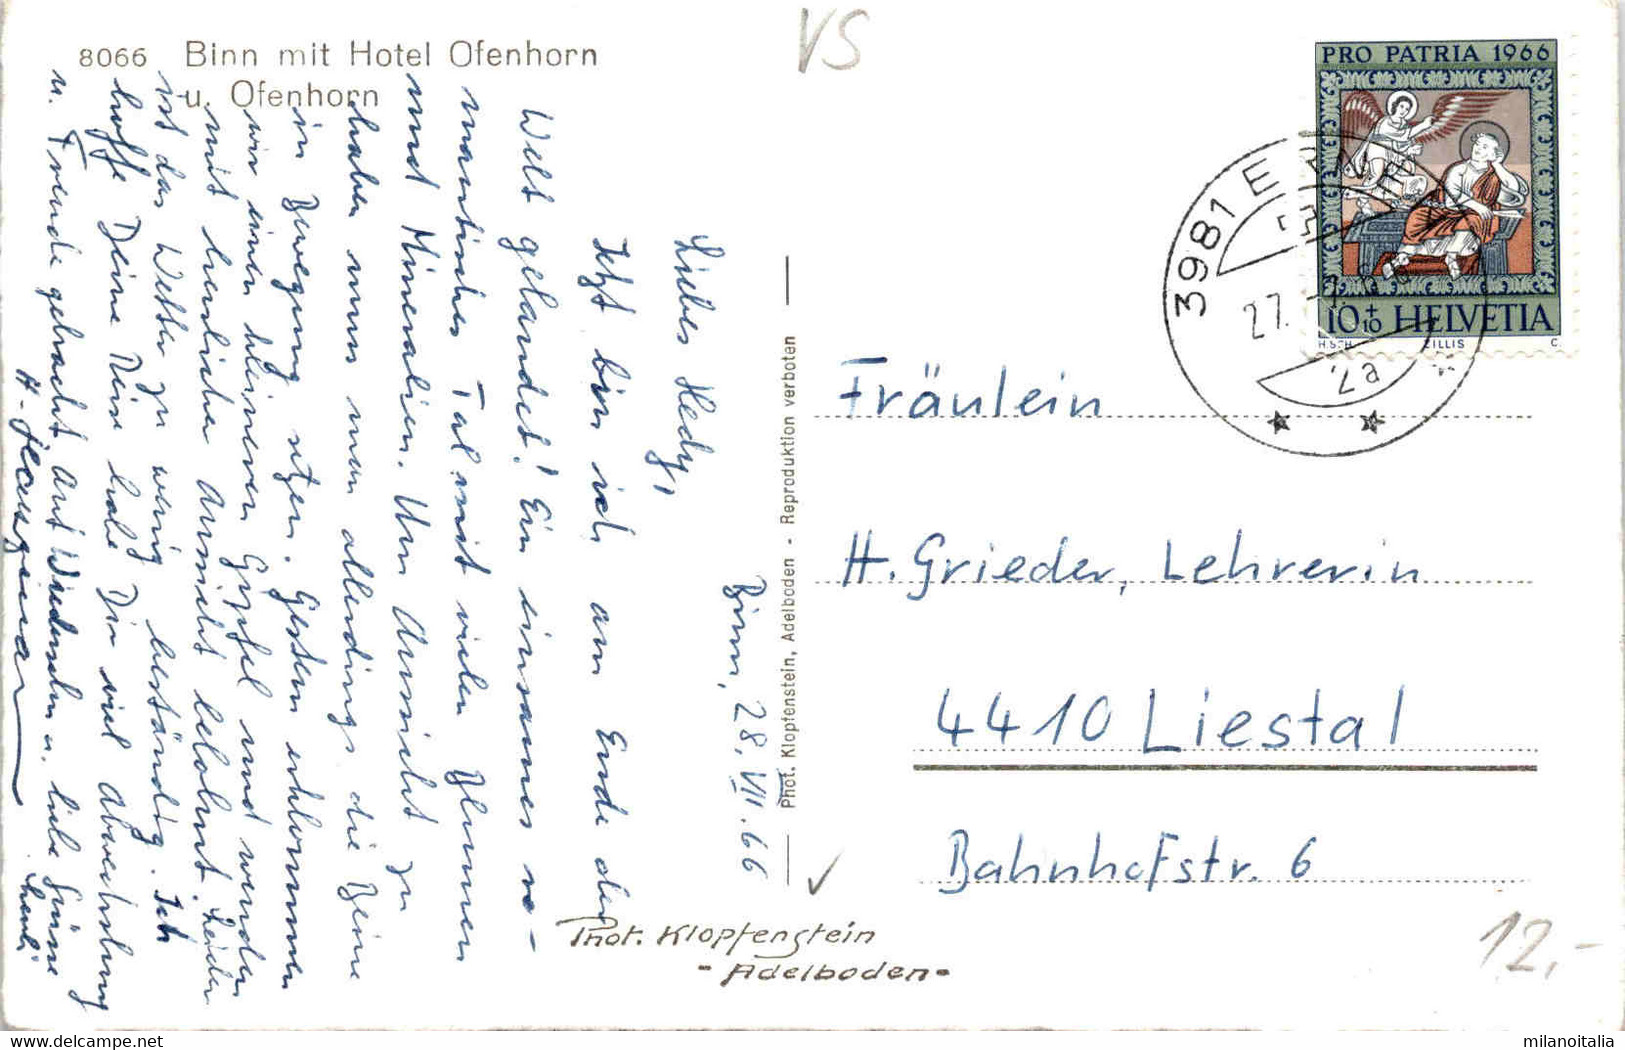 8066 Binn mit Hotel Ofenhorn
u. Ofenhorn
VS
Binn, 28. VII. 66
Liebes Hedy,
Jetzt bin ich am Ende der
Welt gelandet! Ein einsames ro-
mantisches Tal mit vielen Blumen
und Mineralien. Um Aussicht zu
haben muss man allerdings die Beine
in Bewegung setzen. Gestern erklommen
wir einen kleineren Gipfel und wurden
mit herrlicher Aussicht belohnt. Leider
ist das Wetter zu wenig beständig. Ich
hoffe Deine Reise habe Dir viel Abwechslung
u. Freude gebracht. Auf Wiedersehn u. liebe Grüsse
Phot. Klopfenstein, Adelboden - Reproduktion verboten
Phot. Klopfenstein
- Adelboden -
PRO PATRIA 1966
10+10 HELVETIA
ZILLIS
3981
27.
Fräulein
H. Grieder, Lehrerin
4410 Liestal
Bahnhofstr. 6
12,-
milanoitalia